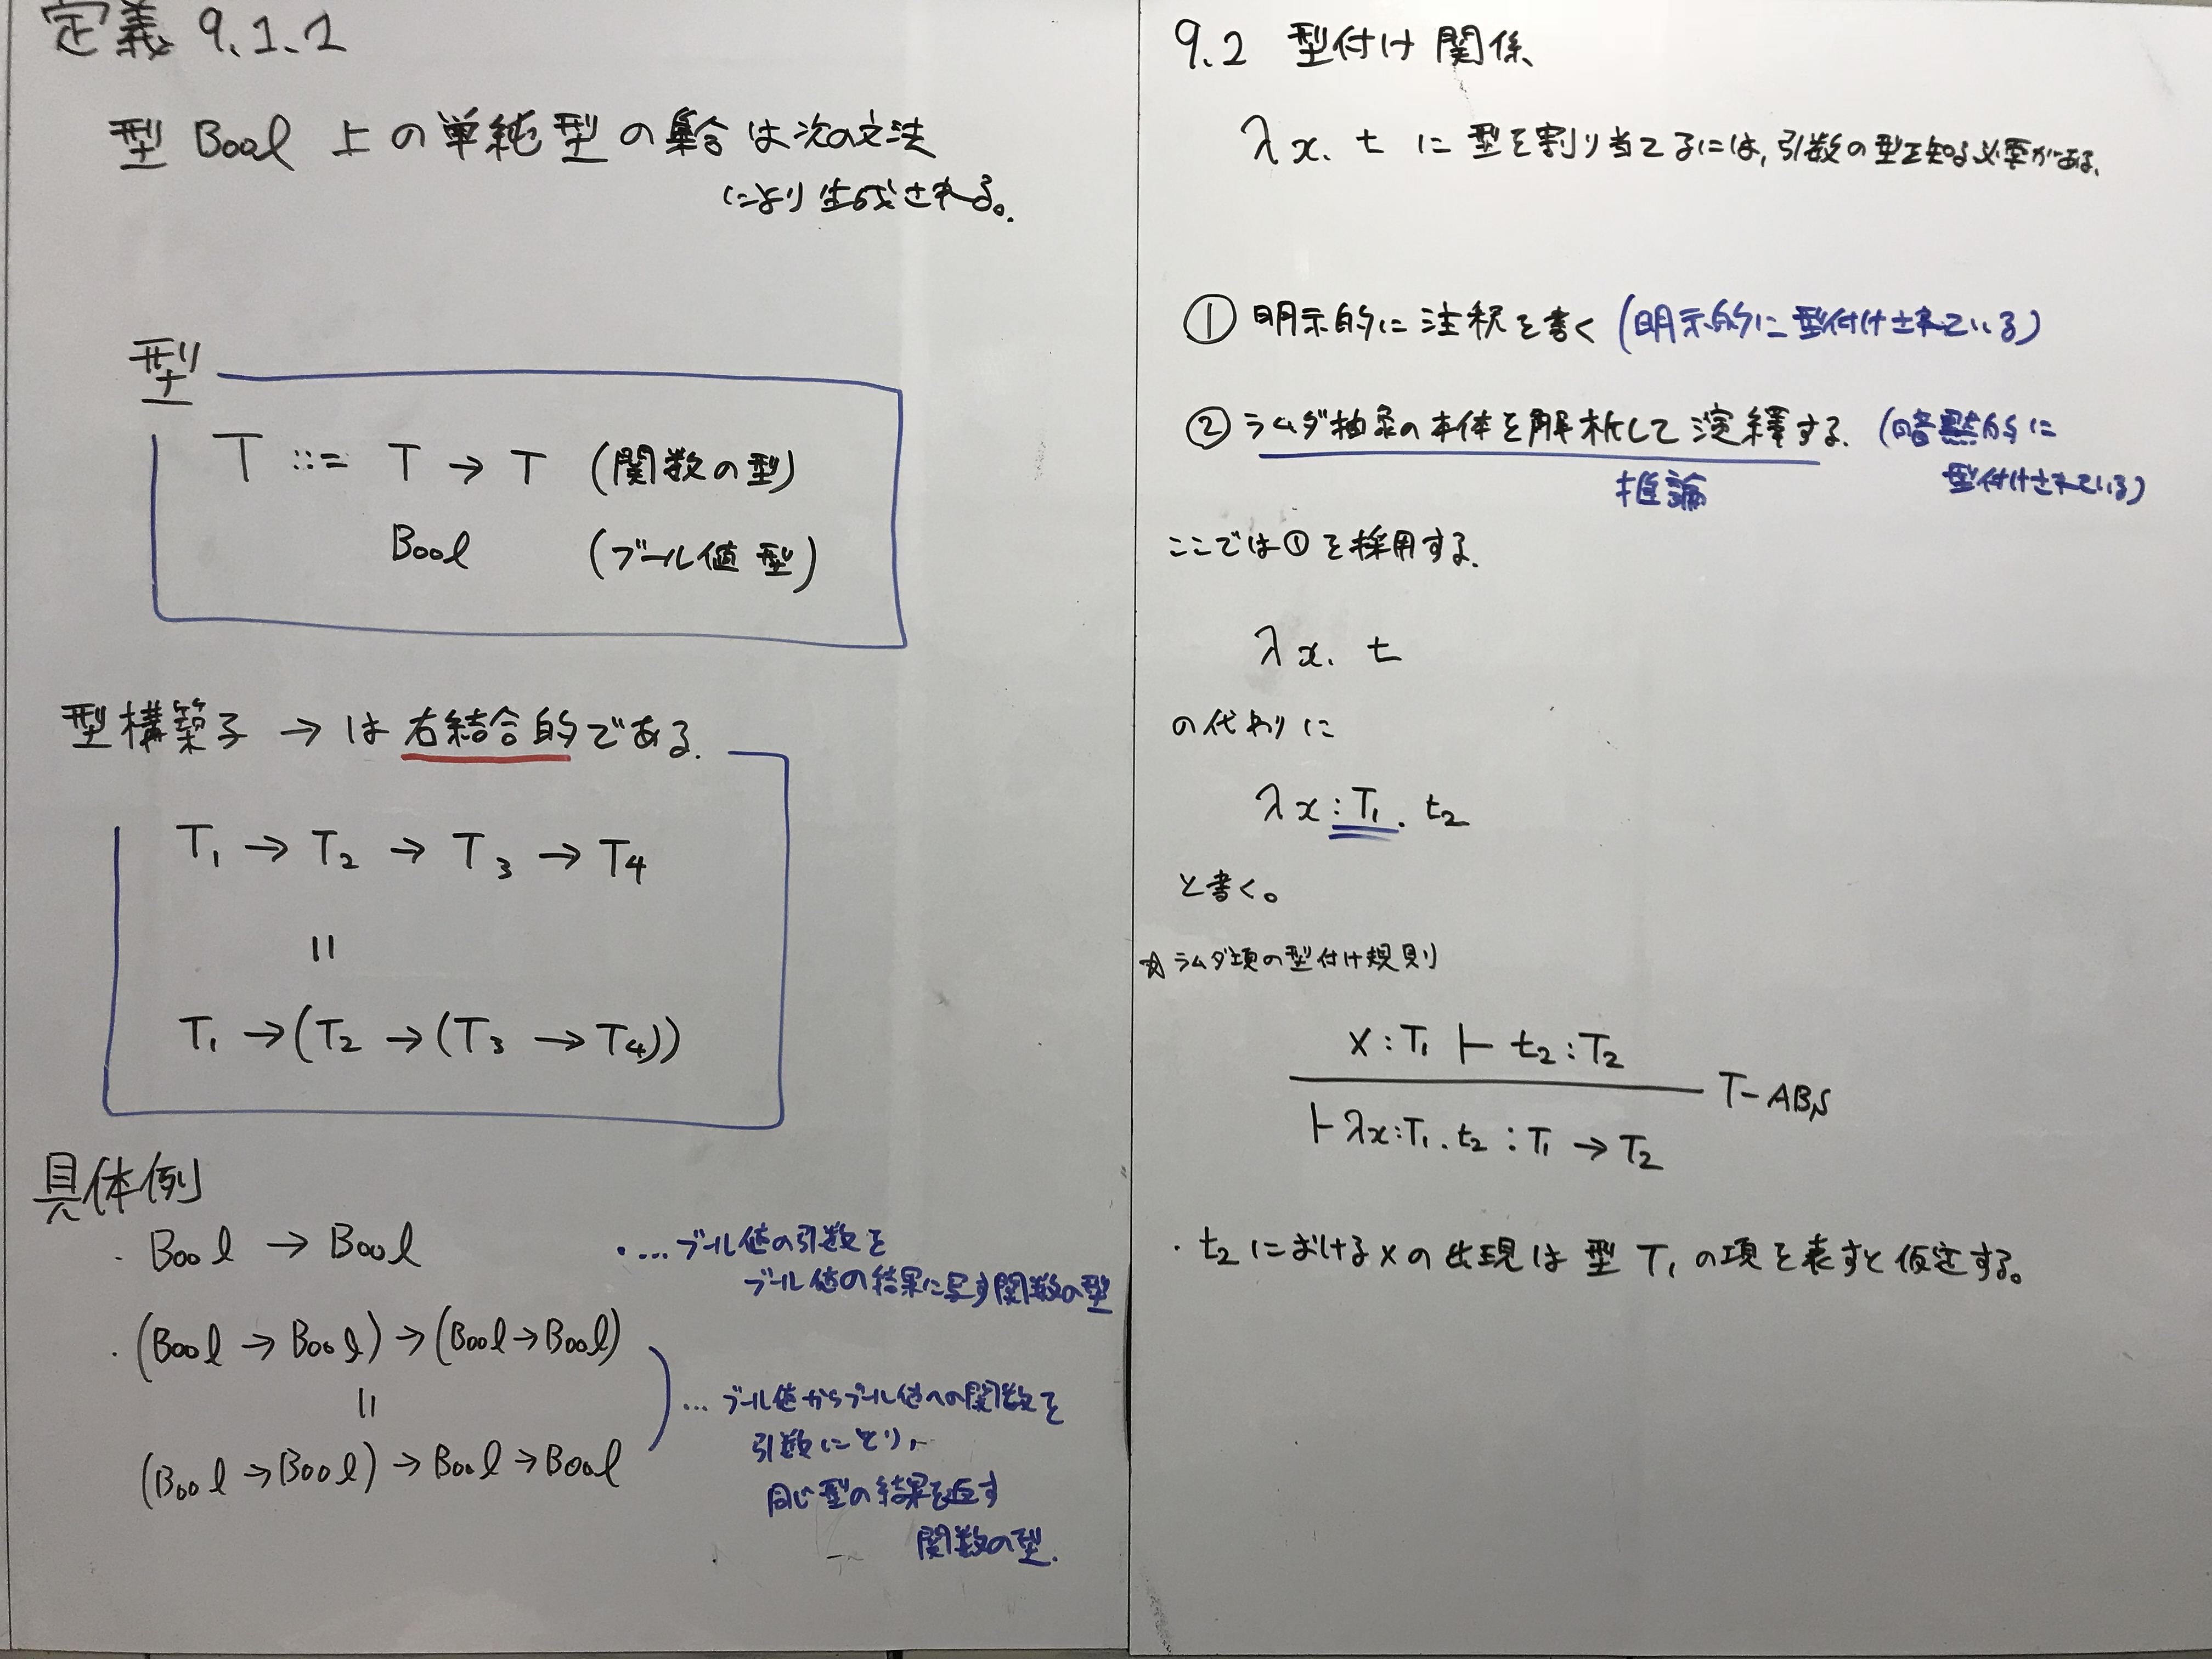 定義 9.1.1
型 Bool 上の単純型の集合は次の文法
により生成される。
型
T ::= T → T (関数の型)
Bool (ブール値型)
型構築子 → は右結合的である.
T₁ → T₂ → T₃ → T₄
=
T₁ → (T₂ → (T₃ → T₄))
具体例
・Bool → Bool
・... ブール値の引数を
ブール値の結果に写す関数の型
・(Bool → Bool) → (Bool → Bool)
=
(Bool → Bool) → Bool → Bool
... ブール値からブール値への関数を
引数にとり,
同じ型の結果を返す
関数の型.
9.2 型付け関係
λx. t に型を割り当てるには, 引数の型を知る必要がある.
① 明示的に注釈を書く (明示的に型付けされている)
② ラムダ抽象の本体を解析して演繹する. (暗黙的に
推論 型付けされている)
ここでは①を採用する.
λx. t
の代わりに
λx:T₁. t₂
と書く。
☆ ラムダ項の型付け規則
x:T₁ ⊢ t₂:T₂
T-ABS
⊢ λx:T₁.t₂ : T₁ → T₂
・t₂ におけるxの出現は型 T₁ の項を表すと仮定する。